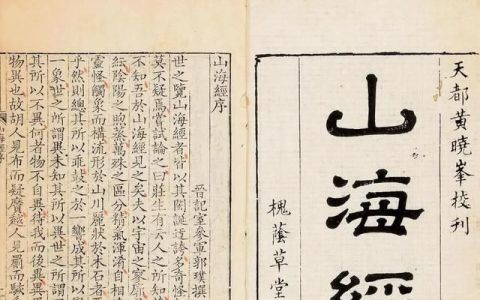 天都黄曉峯校刊
山海經
槐蔭草堂
山海經序
晉記室參軍郭璞撰
世之覽山海經者皆以其閎誕迂誇多奇怪
莫不疑焉嘗試論之曰莊生有云人之所知
不知吾於山海經見之矣夫以宇宙之寥廓
紜陰陽之煦蒸萬殊之區分精氣渾淆自相
靈怪觸象而構流形於山川麗狀於木石者
乎然則總其所以乖鼓之於一響成其所以
一象世之所謂異未知其所以異世之所謂
其所以不異何者物不自異待我而後異異
物異也故胡人見布而疑黂越人見罽而駭
山海經序